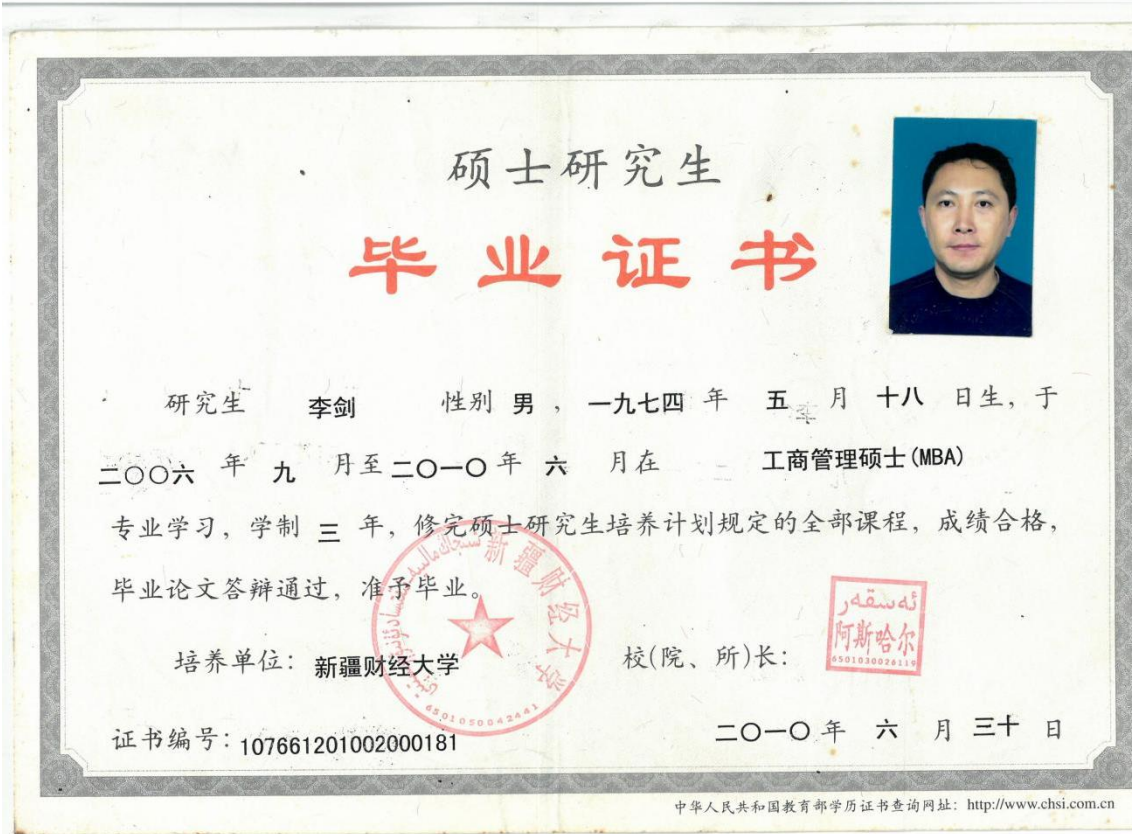 硕士研究生
毕业证书
研究生 李剑 性别 男 , 一九七四 年 五 月 十八 日生, 于
二〇〇六 年 九 月至 二〇一〇 年 六 月在 工商管理硕士(MBA)
专业学习, 学制 三 年, 修完硕士研究生培养计划规定的全部课程, 成绩合格,
毕业论文答辩通过, 准予毕业。
新疆财经大学
6501050042441
ئەسقەر
阿斯哈尔
6501030026119
培养单位: 新疆财经大学 校(院、所)长:
证书编号: 107661201002000181 二〇一〇 年 六 月 三十 日
中华人民共和国教育部学历证书查询网址: http://www.chsi.com.cn